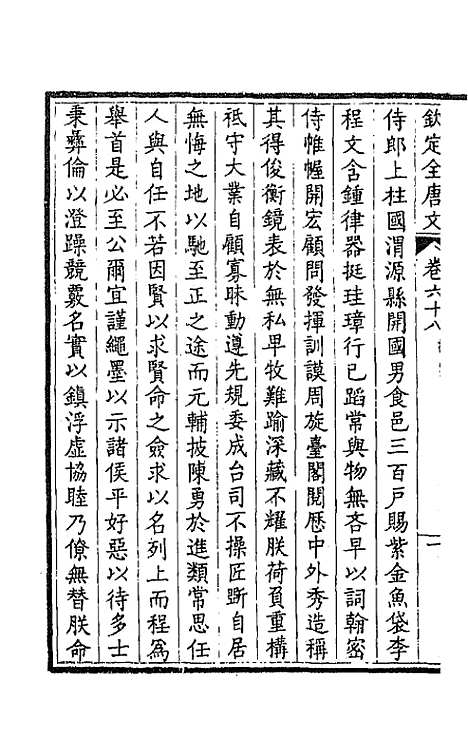 欽定全唐文 卷六十八 一
侍郎上柱國渭源縣開國男食邑三百戶賜紫金魚袋李
程文含鍾律器挺珪璋行已蹈常與物無吝早以詞翰密
侍帷幄開宏顧問發揮訓謨周旋臺閣閱歷中外秀造稱
其得俊衡鏡表於無私早牧難踰深藏不耀朕荷負重構
祗守大業自顧寡昧動遵先規委成台司不操匠斲自居
無悔之地以馳至正之途而元輔披陳勇於進類常思任
人與自任不若因賢以求賢命之僉求以名列上而程爲
舉首是必至公爾宜謹繩墨以示諸侯平好惡以待多士
秉彝倫以澄躁競覈名實以鎮浮虛協睦乃僚無替朕命